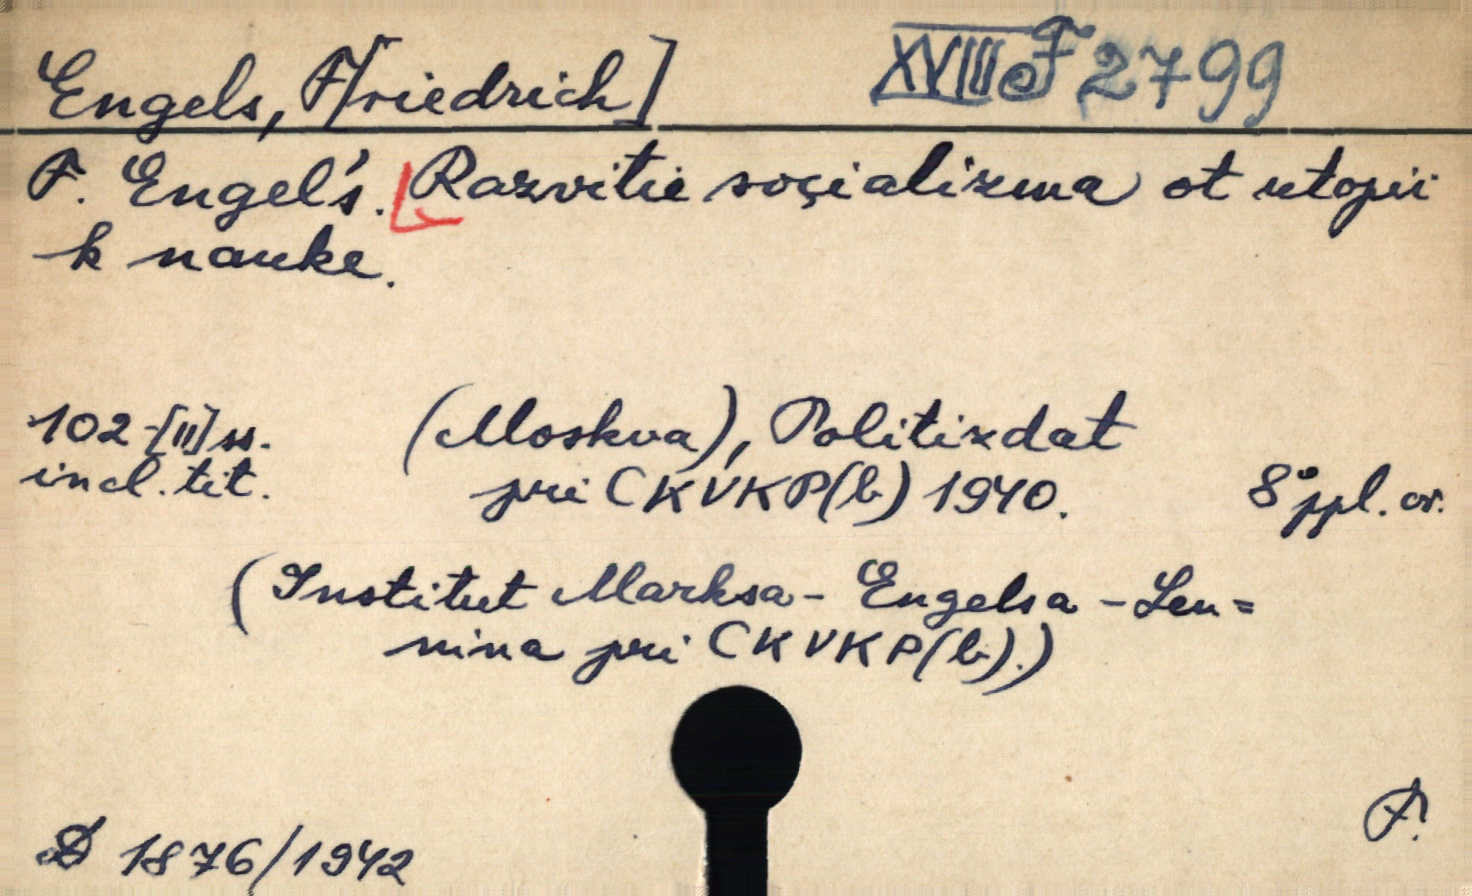 Engels, F[riedrich]
XVIII F 2799
F. Engel's. Razvitie soçializma ot utopii
k nauke.
102-[II] ss.
incl. tit.
(Moskva), Politizdat
pri CK VKP(b) 1940.
8° ppl. or.
(Institut Marksa - Engelsa - Len=
nina pri CK VKP(b).)
D 1876/1942